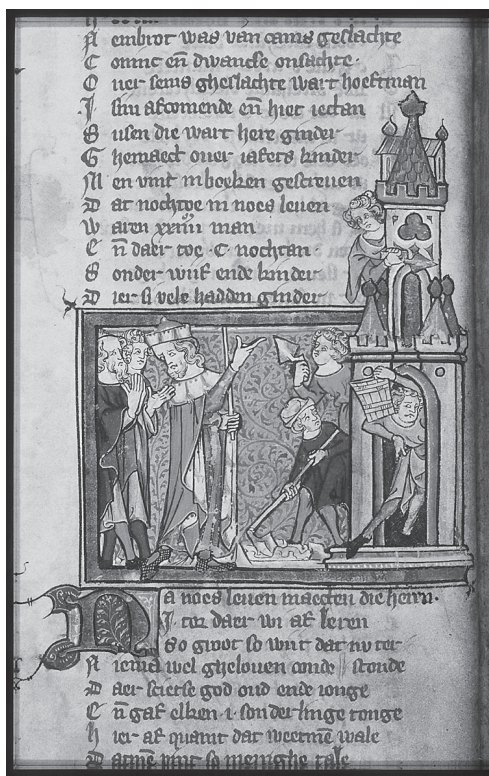 N embrot was van cams geslachte
C omnc en̄ dwancse onsachte·
O uer sems gheslachte wart hoefman
J· snu afcomende en̄ hiet iectan
S usen die wart here ginder
G hemaect ouer iafets kinder
M en vint in boeken gescreuen
D at nochtoe in noes leuen
W aren xxiiii man
E n̄ daer toe ·C· nochtan
S onder wiif ende kinder
D ier si vele hadden ginder
N a noes leuen maecten die heren·
J· tor daer wi af leren
So groot so wiit dat nv ter
N iema wel ghelouen conde stonde
D aer scietse god oud ende ionge
E n̄ gaf elken ·i· sonderlinge tonge
h ier af quamt dat weetmē wale
D atmē vint so menighe tale